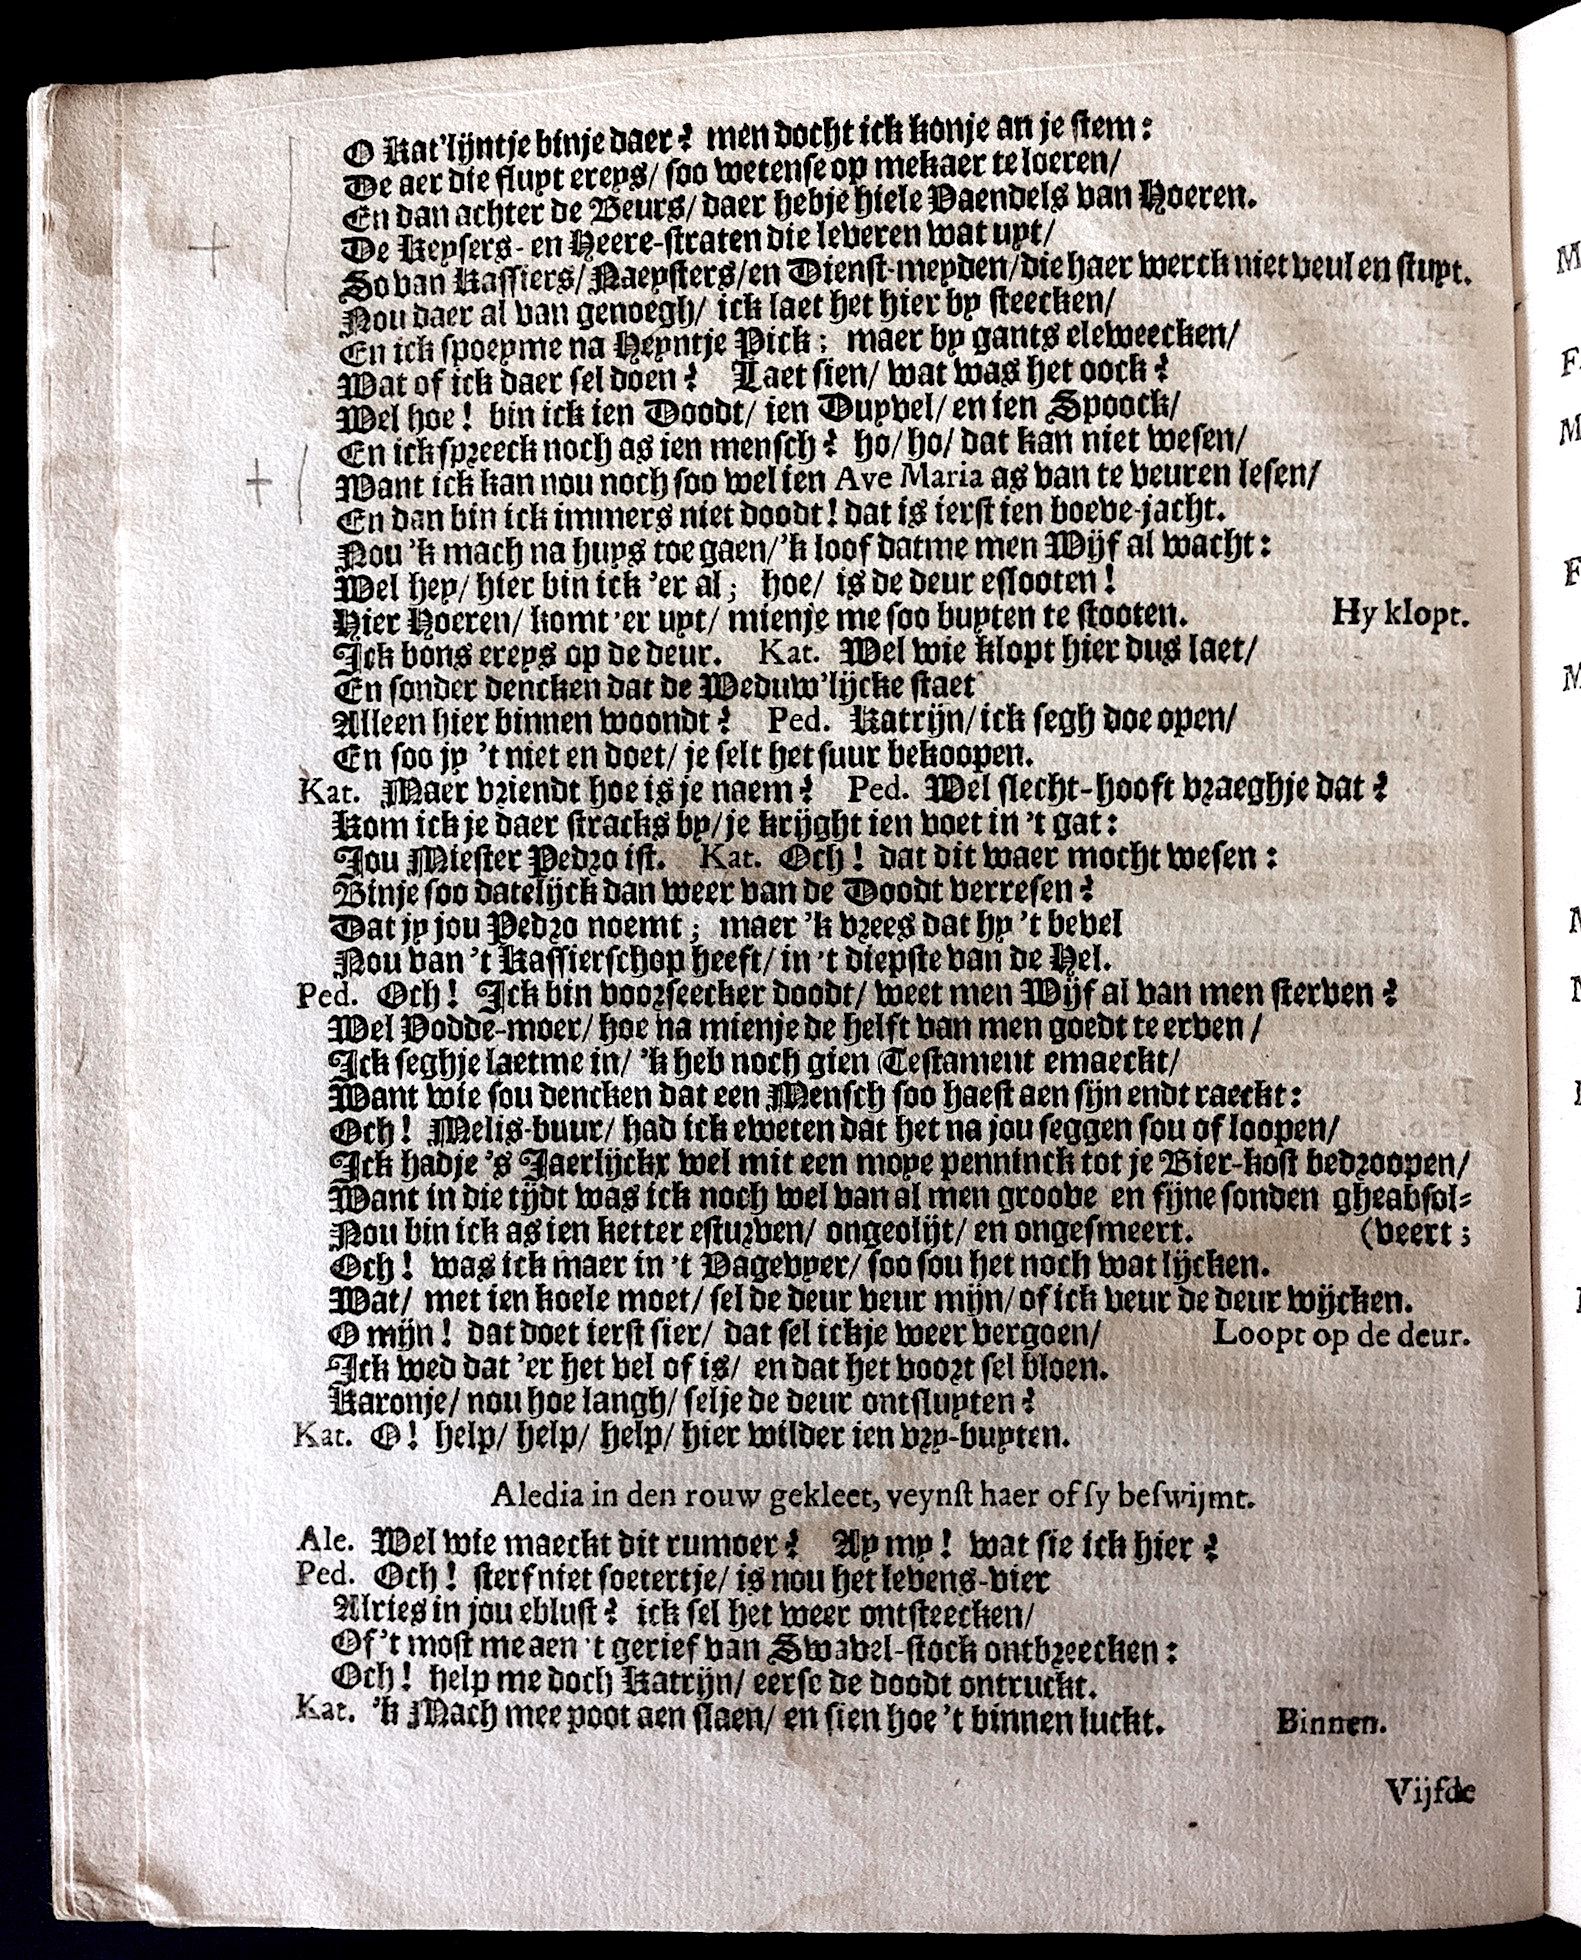 O Kat'lijntje binje daer? men docht ick konje an je stem:
De aer die sluypt ereys/ soo wetense op mekaer te loeren/
En dan achter de Beurs/ daer hebje hiele Vaendels van Hoeren.
De Keysers- en Heere-straten die leveren wat uyt/
So van Kassiers/ Naeysters/ en Dienst-meyden/ die haer werck niet veul en stuyt.
Nou daer al van genoegh/ ick laet het hier by steecken/
En ick spoeyme na Heyntje Pick; maer by gants eleweecken/
Wat of ick daer sel doen? Laet sien/ wat was het oock?
Wel hoe! bin ick ien Doodt/ ien Duyvel/ en ien Spoock/
En ick spreeck noch as ien mensch? ho/ ho/ dat kan niet wesen/
Want ick kan nou noch soo wel ien Ave Maria as van te veuren lesen/
En dan bin ick immers niet doodt! dat is ierst ien boeve-jacht.
Nou 'k mach na huys toe gaen/ 'k loof datme men Wijf al wacht:
Wel hey/ hier bin ick 'er al; hoe/ is de deur eslooten!
Hier Hoeren/ komt 'er uyt/ mienje me soo buyten te stooten. Hy klopt.
Ick bons ereys op de deur. Kat. Wel wie klopt hier dus laet/
En sonder dencken dat de Weduw'lijcke staet
Alleen hier binnen woondt? Ped. Katrijn/ ick segh doe open/
En soo jy 't niet en doet/ je selt het suur bekoopen.
Kat. Maer vriendt hoe is je naem? Ped. Wel slecht-hooft vraeghje dat?
Kom ick je daer stracks by/ je krijght ien voet in 't gat:
Jou Miester Pedro ist. Kat. Och! dat dit waer mocht wesen:
Binje soo datelijck dan weer van de Doodt verresen?
Dat jy jou Pedro noemt; maer 'k vrees dat hy 't bevel
Nou van 't Kassierschop heeft/ in 't diepste van de Hel.
Ped. Och! Ick bin voorseecker doodt/ weet men Wijf al van men sterven?
Wel Vodde-moer/ hoe na mienje de helft van men goedt te erven/
Ick seghje laetme in/ 'k heb noch gien Testament emaeckt/
Want wie sou dencken dat een Mensch soo haest aen sijn endt raeckt:
Och! Melis-buur/ had ick eweten dat het na jou seggen sou of loopen/
Ick hadje 's Jaerlijckx wel mit een moye penninck tot je Bier-kost bedroopen/
Want in die tijdt was ick noch wel van al men groove en fijne sonden gheabsol-
Nou bin ick as ien ketter esturven/ ongeolijt/ en ongesmeert. (veert;
Och! was ick maer in 't Vagevyer/ soo sou het noch wat lijcken.
Wat/ met ien koele moet/ sel de deur veur mijn/ of ick veur de deur wijcken.
O mijn! dat doet ierst sier/ dat sel ickje weer vergoen/ Loopt op de deur.
Ick wed dat 'er het vel of is/ en dat het voort sel bloen.
Karonje/ nou hoe langh/ selje de deur ontsluyten?
Kat. O! help/ help/ help/ hier wilder ien vry-buyten.
Aledia in den rouw gekleet, veynst haer of sy beswijmt.
Ale. Wel wie maeckt dit rumoer? Ay my! wat sie ick hier?
Ped. Och! sterf niet soetertje/ is nou het levens-vier
Alries in jou eblust? ick sel het weer ontsteecken/
Of 't most me aen 't gerief van Swavel-stock ontbreecken:
Och! help me doch Katrijn/ eerse de doodt ontruckt.
Kat. 'k Mach mee poot aen slaen/ en sien hoe 't binnen luckt. Binnen.
Vijfde